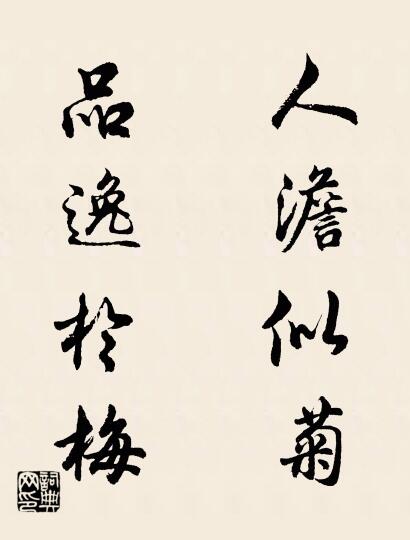 人澹似菊
品逸於梅
詞典网印